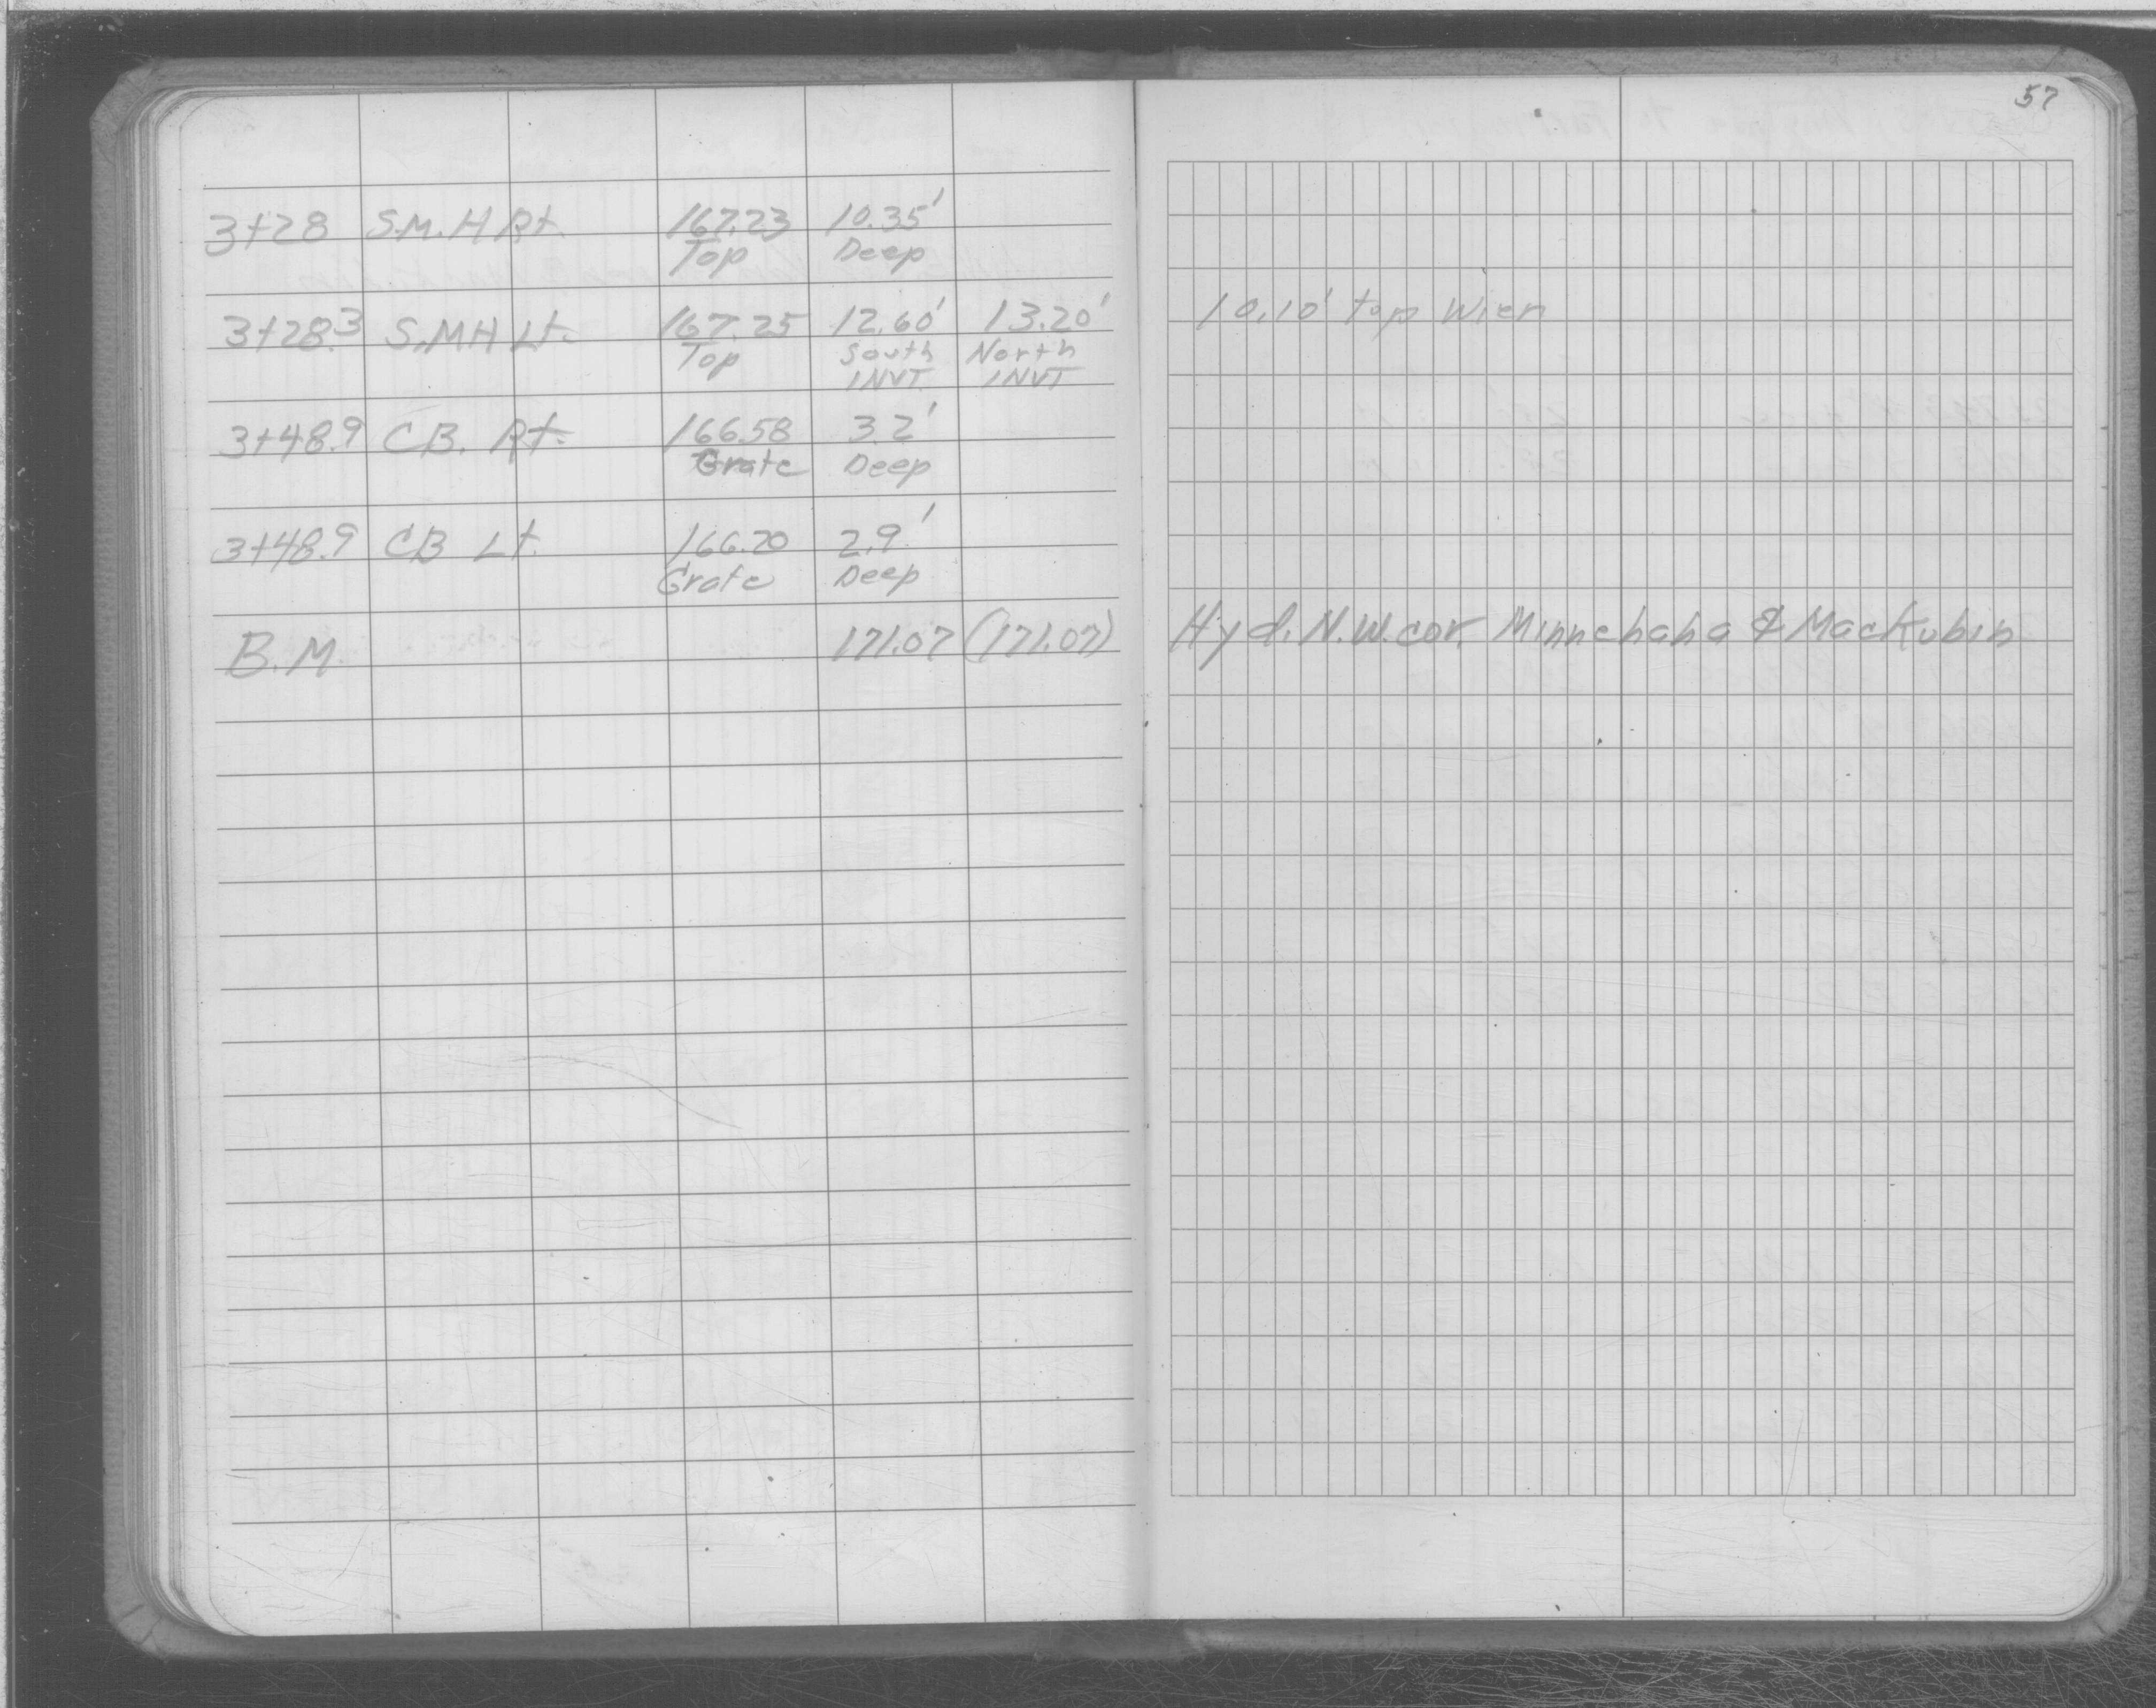 57
3+28 S.M.H Rt. 167.23 10.35'
Top Deep
3+28.3 S.MH Lt. 167.25 12.60' 13.20' 10.10' top Wier
Top South North
INVT. INVT
3+48.9 C.B. Rt. 166.58 3.2'
Grate Deep
3+48.9 CB Lt. 166.20 2.9'
Grate Deep
B.M. 171.07 (171.07) Hyd. N.W. cor. Minnehaha & Mackubin